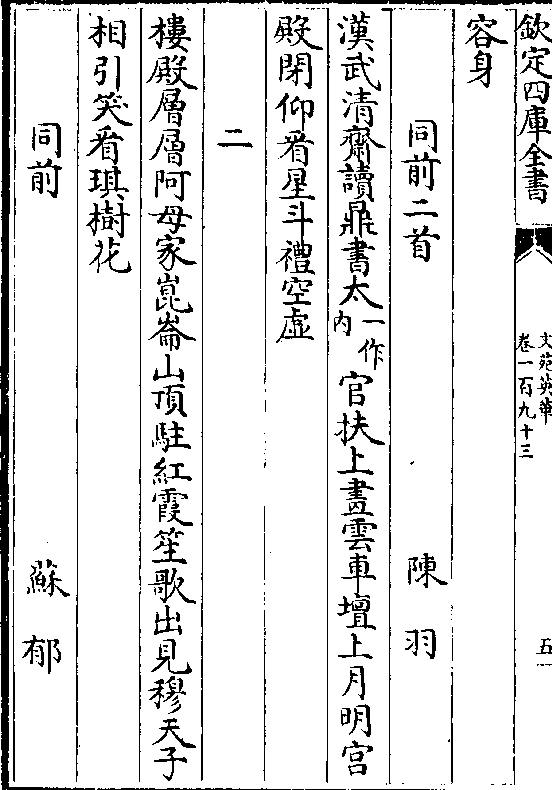 欽定四庫全書
文苑英華
卷一百九十三
五
容身
同前二首 陳羽
漢武清齋讀鼎書太一作內官扶上畫雲車壇上月明宮
殿閉仰看星斗禮空虛
二
樓殿層層阿母家崑崙山頂駐紅霞笙歌出見穆天子
相引笑看琪樹花
同前 蘇郁